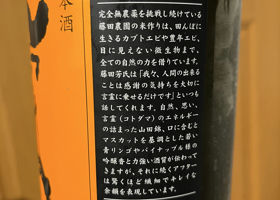 本酒
完全無農薬を挑戦し続けている
藤田農園の米作りは、田んぼに
生きるカブトエビや豊年エビ、
目に見えない微生物まで、
全ての自然の力を借りています。
藤田芳氏は「我々、人間の出来る
ことは感謝の気持ちを大切に
言霊に乗せるだけです」といつも
話してくれます。自然、思い、
言霊(コトダマ)のエネルギー
の詰まった山田錦、口に含むと
マスカットを基調とした若い
青リンゴやパイナップル様の
吟醸香と力強い酒質が伝わって
きますが、それに続くアフター
は驚くほど繊細でキレイな
余韻を表現しています。